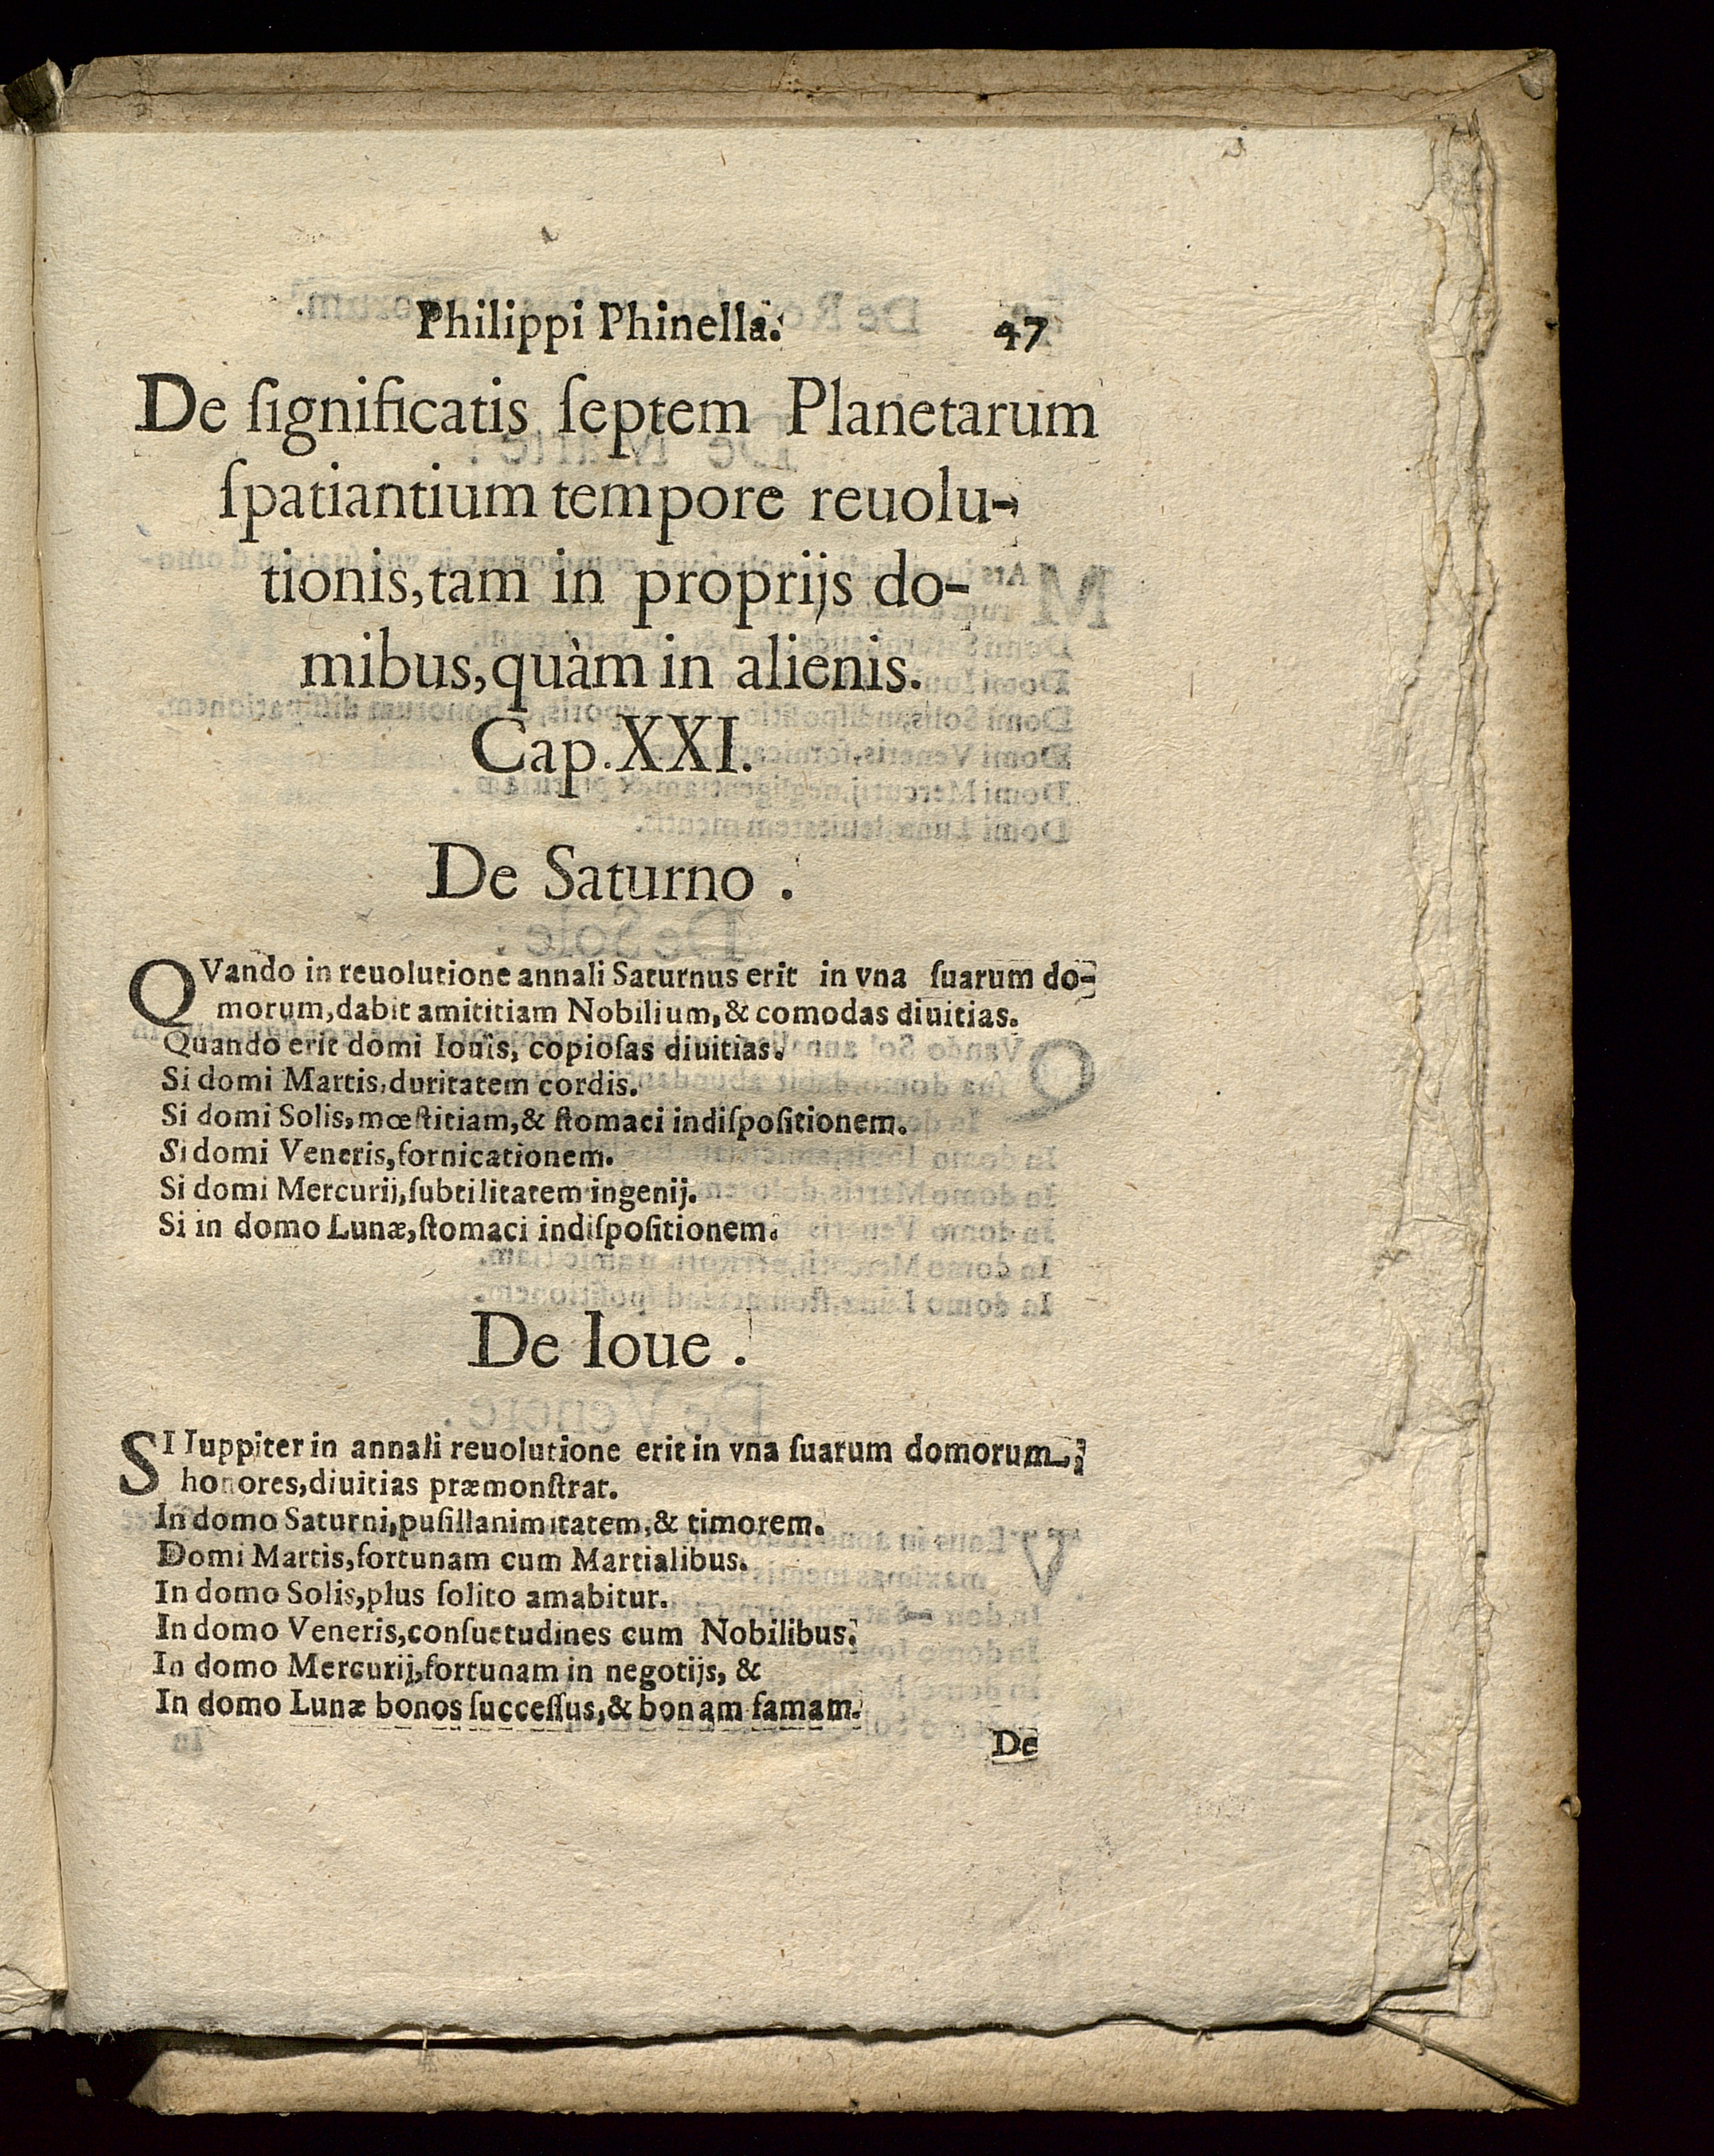 Philippi Phinella. 47
De ſignificatis ſeptem Planetarum
ſpatiantium tempore reuolu-
tionis,tam in proprijs do-
mibus,quàm in alienis.
Cap.XXI.
De Saturno .
QVando in reuolutione annali Saturnus erit in vna ſuarum do-
morum,dabit amititiam Nobilium,& comodas diuitias.
Quando erit domi Iouis, copioſas diuitias.
Si domi Martis,duritatem cordis.
Si domi Solis,mœſtitiam,& ſtomaci indiſpoſitionem.
Si domi Veneris,fornicationem.
Si domi Mercurij,ſubtilitatem ingenij.
Si in domo Lunæ,ſtomaci indiſpoſitionem.
De Ioue .
SI Iuppiter in annali reuolutione erit in vna ſuarum domorum,
honores,diuitias præmonſtrat.
In domo Saturni,puſillanimitatem,& timorem.
Domi Martis,fortunam cum Martialibus.
In domo Solis,plus ſolito amabitur.
In domo Veneris,conſuetudines cum Nobilibus.
In domo Mercurij,fortunam in negotijs, &
In domo Lunæ bonos ſucceſſus,& bonam famam.
De